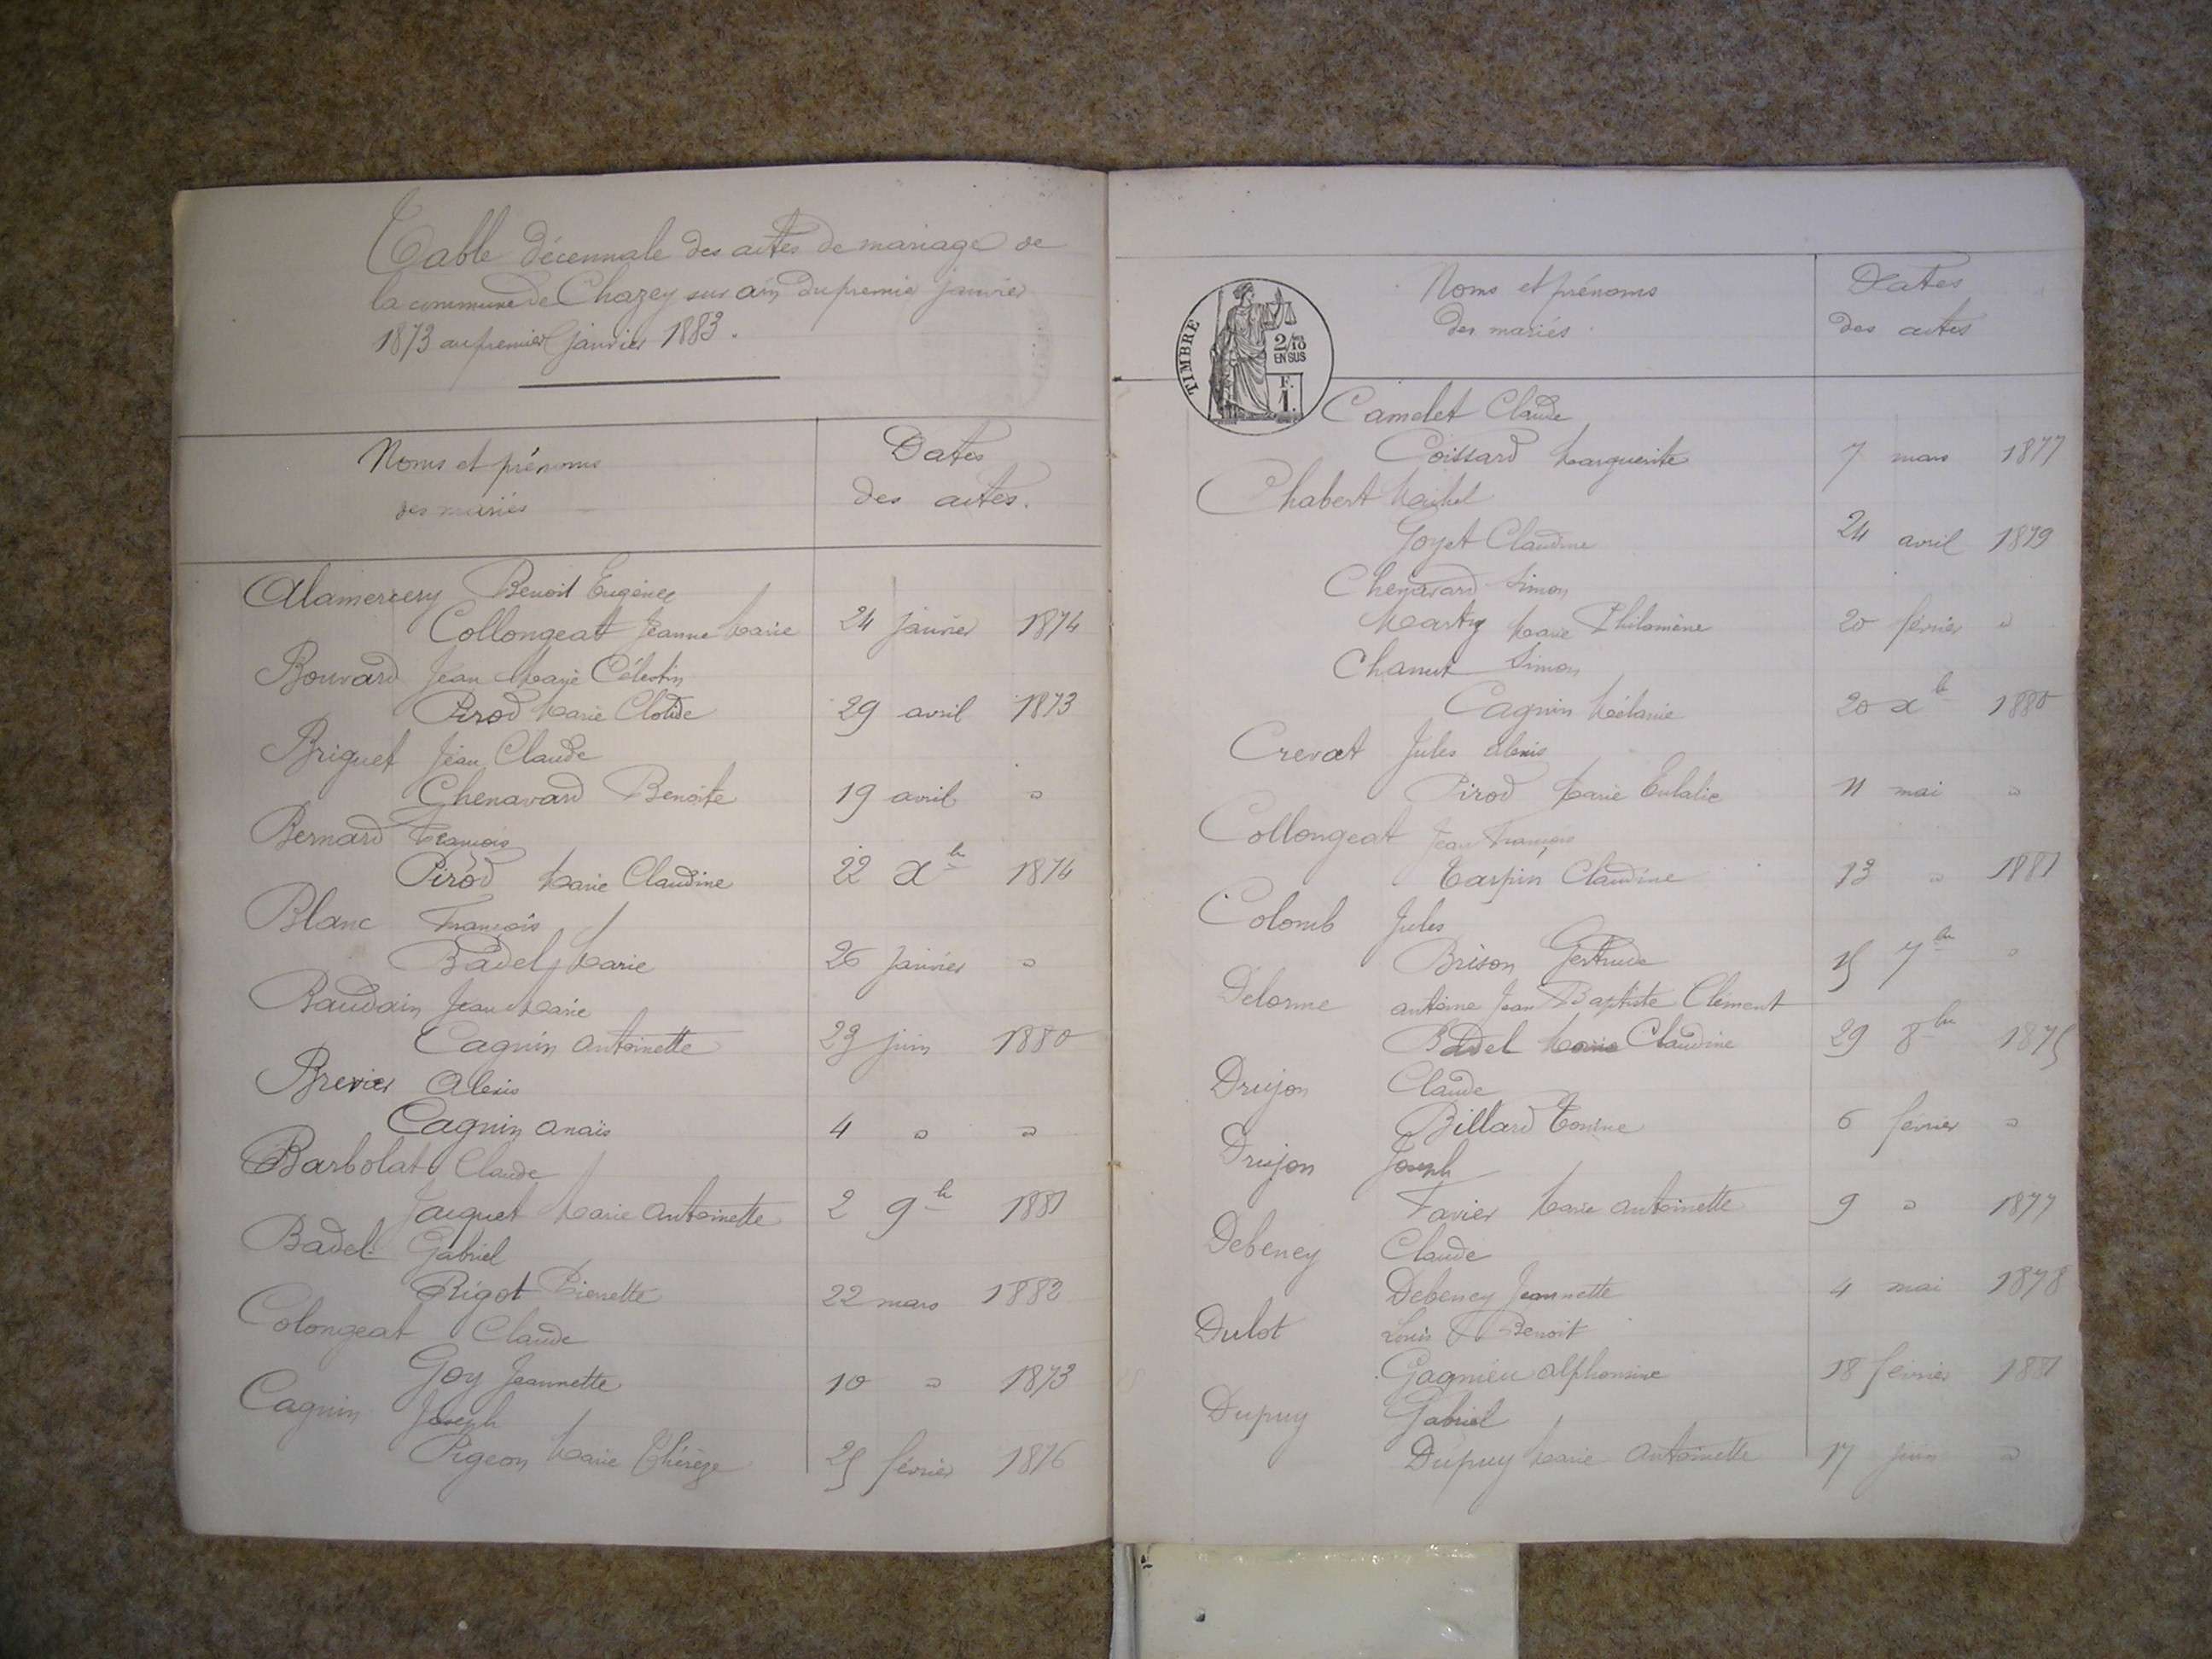 Table décennale des actes de mariage de
la commune de Chazey sur ain du premier janvier
1873 au premier janvier 1883.
Noms et prénoms
des mariés
Dates
des actes.
Alamercery Benoit Eugène
Collongeat Jeanne Marie 24 janvier 1874
Bouvard Jean Marie Célestin
Pirod Marie Clotide 29 avril 1873
Briguet Jean Claude
Chenavard Benoite 19 avril "
Bernard François
Pirod Marie Claudine 22 Xbre 1874
Blanc François
Badel Marie 26 janvier "
Baudain Jean Marie
Cagnin Antoinette 23 juin 1880
Brevier Alexis
Cagnin Anaïs 4 " "
Barbolat Claude
Jacquet Marie Antoinette 2 9bre 1881
Badel Gabriel
Rigot Pierrette 22 mars 1882
Colongeat Claude
Goy Jeannette 10 " 1873
Cagnin Joseph
Pigeon Marie Thérèze 25 février 1876
TIMBRE
2/10
EN SUS
F.
1.
Noms et prénoms
des mariés
Dates
des actes
Camelet Claude
Coissard Marguerite 7 mars 1877
Chabert Michel
Goyet Claudine 24 avril 1879
Chenavard Simon
Martin Marie Philomène 20 février "
Chanut Simon
Cagnin Mélanie 20 Xbre 1880
Crevat Jules Alexis
Pirod Marie Eulalie 11 mai "
Collongeat Jean François
Tarpin Claudine 13 " 1881
Colomb Jules
Brison Gertrude 15 7bre "
Delorme antoine Jean Baptiste Clément
Badel Marie Claudine 29 8bre 1875
Drujon Claude
Billard Tonine 6 février "
Drujon Joseph
Favier Marie Antoinette 9 " 1877
Debeney Claude
Debeney Jeannette 4 mai 1878
Dulot Louis Benoit
Gagnieu Alphonsine 18 février 1881
Dupuy Gabriel
Dupuy Marie Antoinette 17 juin "